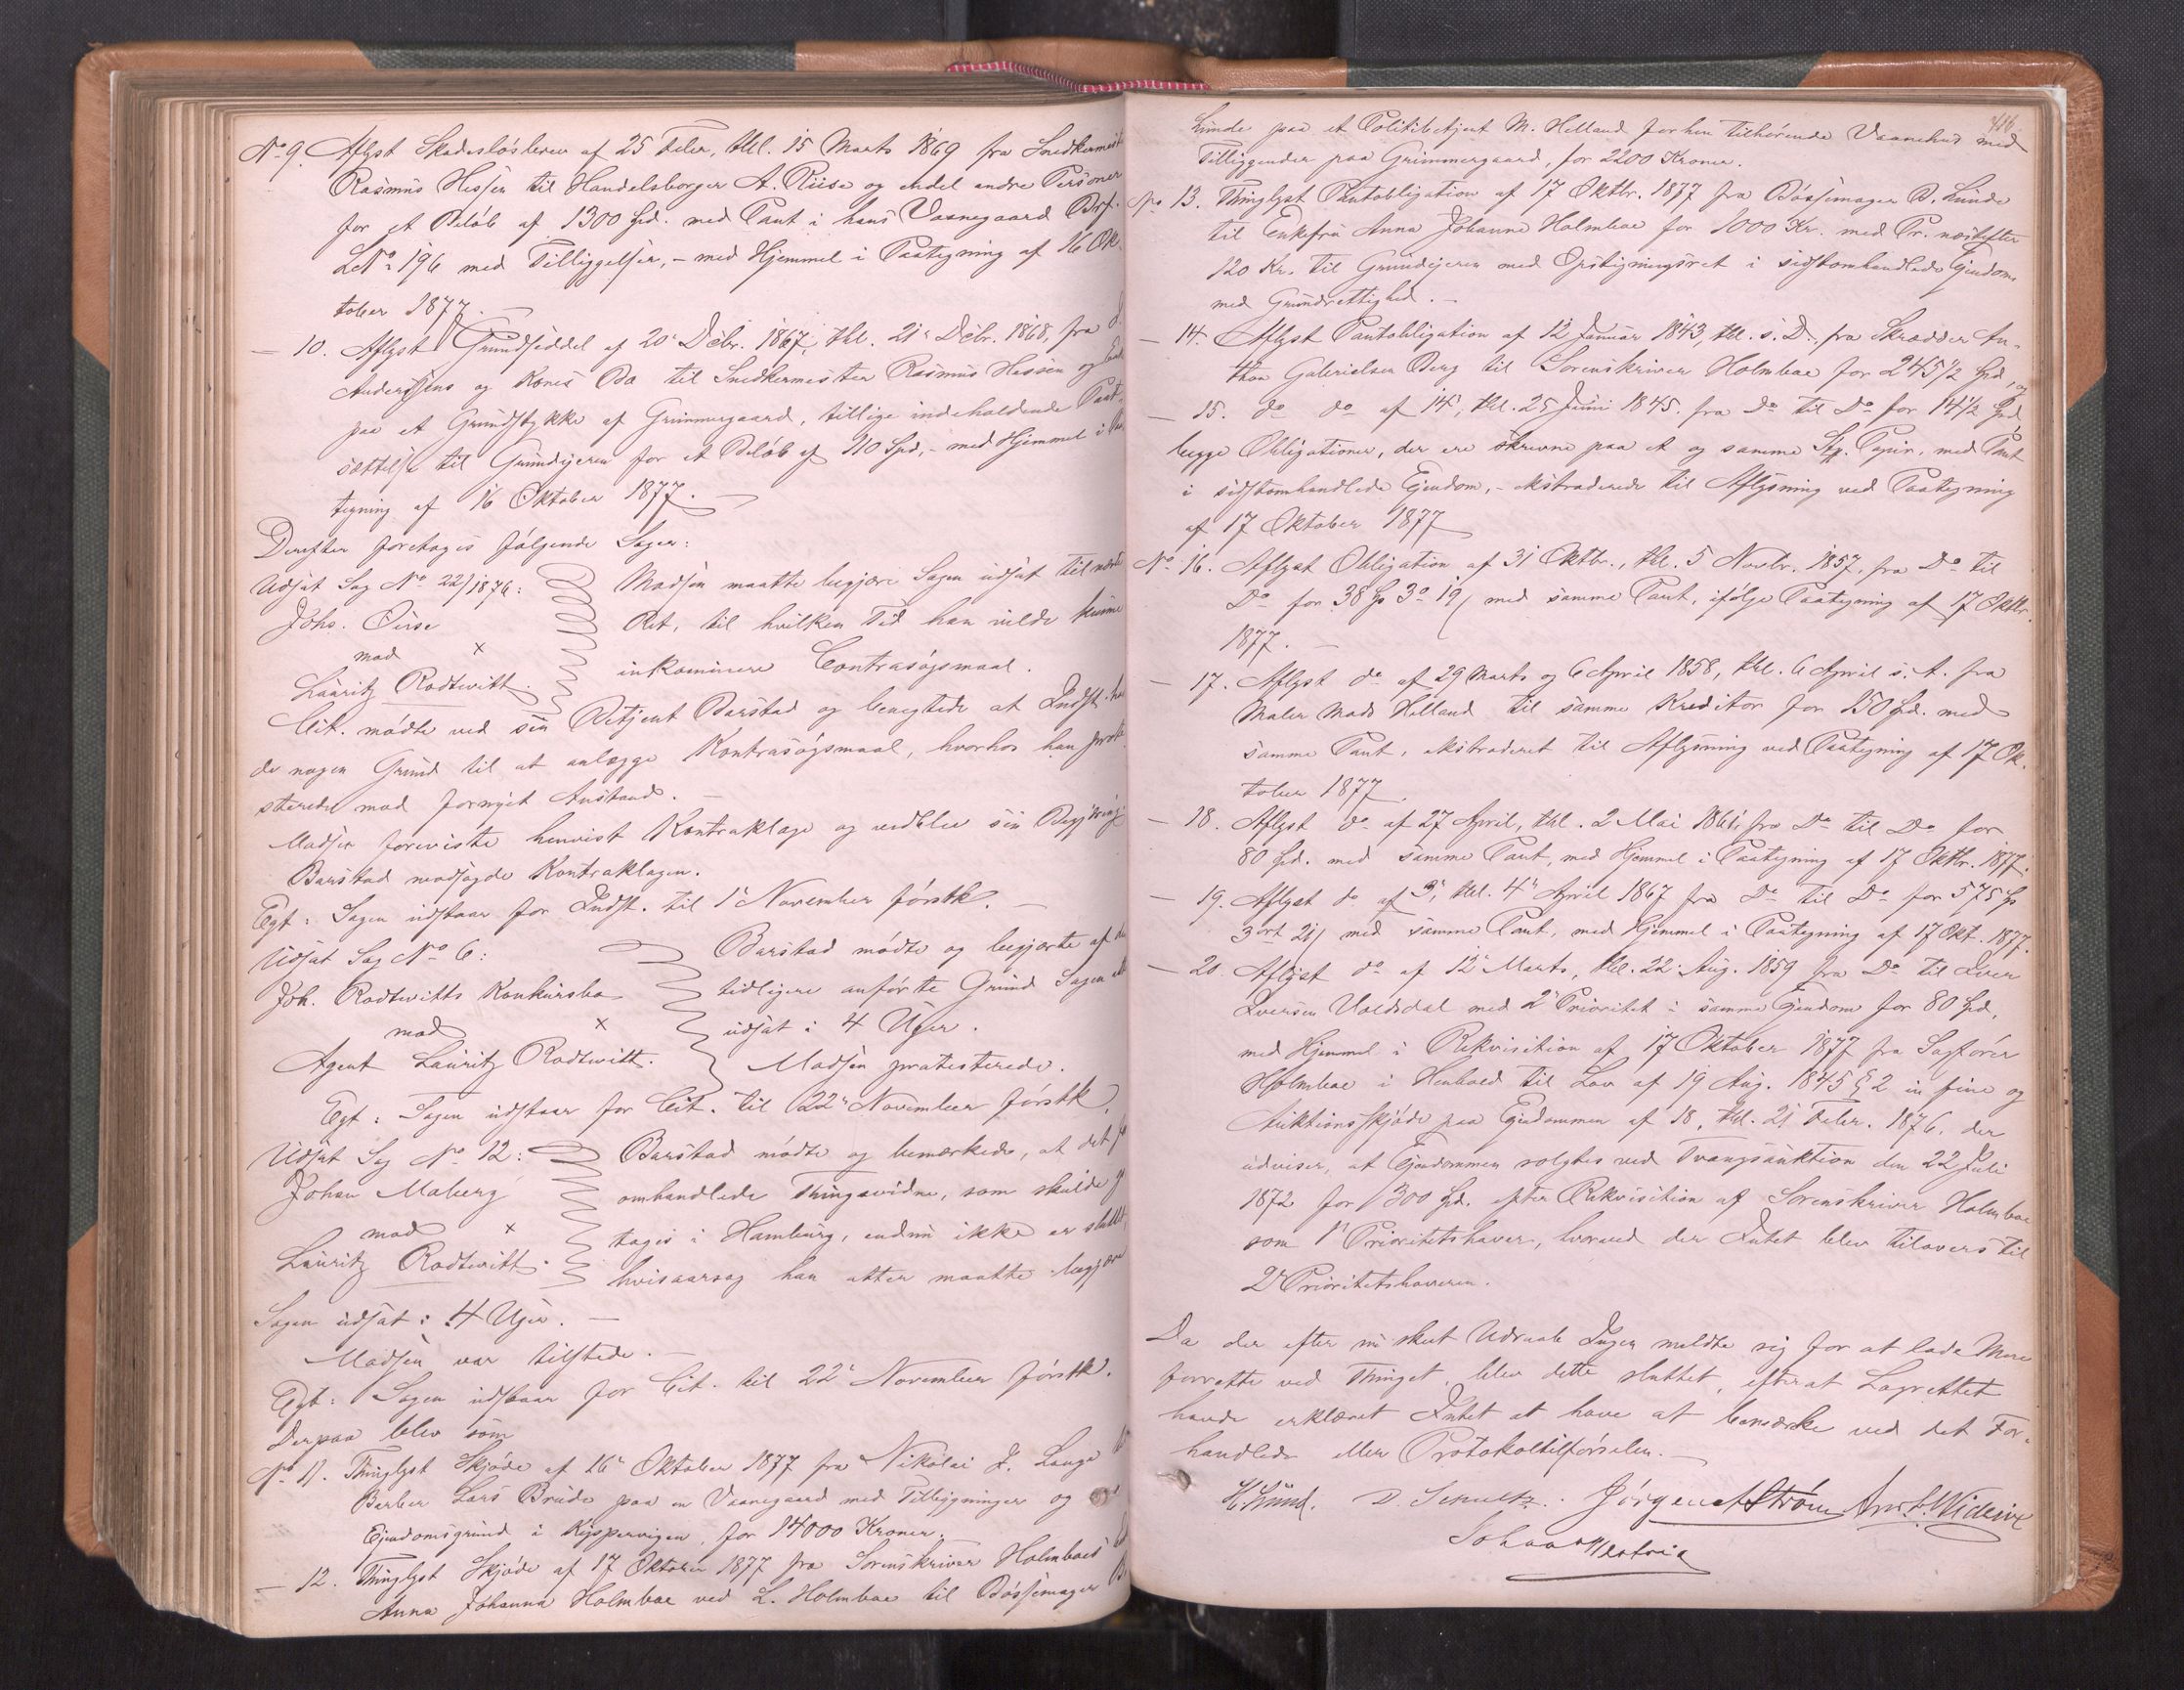 No 9. Aflyst Skadesløsbrev af 25 Febr., thl. 15 Marts 1869 fra Snedkermester
Rasmus Hessen til Handelsborger A. Riise og endel andre Personer
for et Beløb af 1300 Spd. med Pant i hans Vaanegaard Brf.
LNo 196 med Tilliggelser, – med Hjemmel i Paategning af 16 Ok-
tober 1877. –
– 10. Aflyst Grundseddel af 20 Debr. 1867, thl. 21 Debr. 1868, fra
Anders Jens og Kones Bo til Snedkermester Rasmus Hessen og
paa et Grundstykke af Grimmergaard, tillige indeholdende Pant-
sættelse til Grundeieren for et Beløb af 110 Spd, – med Hjemmel i Paa-
tegning af 16 Oktober 1877. –
Derefter foretoges følgende Sager:
Udsat Sag No 22/1876:
Johs. Riise
mod x
Lauritz Rodtwitt.
Madsen maatte begjære Sagen udsat til næste
Ret, til hvilken Tid han vilde kunne
inkaminere Contrasøgsmaal.
Cit. mødte ved sin Betjent Barstad og benegtede at Indst. hav-
de nogen Grund til at anlægge Kontrasøgsmaal, hvorhos han prote-
sterede mod fornyet Anstand. –
Madsen foreviste henvist Kontraklage og vedblev sin Begjæring.
Barstad modsagde Kontraklagen.
Egt: Sagen udstaar for Indst. til 1 November førstk. –
Udsat Sag No 6:
Joh. Rodtwitts Konkursbo
mod x
Agent Lauritz Rodtwitt.
Barstad mødte og begjærte af den
tidligere anførte Grund Sagen
udsat i 4 Uger.
Madsen protesterede.
Egt: Sagen udstaar for Cit. til 22 November førstk.
Udsat Sag No 12:
Johan Moberg
mod x
Lauritz Rodtwitt.
Barstad mødte og bemærkede, at det
omhandlede Thingsvidne, som skulde
tages i Hamburg, endnu ikke er sluttet,
hvisaarsag han atter maatte begjære
Sagen udsat i 4 Uger. –
Madsen var tilstede. –
Egt: Sagen udstaar for Cit. til 22 November førstk.
Derpaa blev som
No 11. Thinglyst Skjøde af 16 Oktober 1877 fra Nikolai J. Lange
Berber Lars Brude paa en Vaanegaard med Tilbygninger og
Ejendomsgrund i Kipervigen, for 14000 Kroner.
– 12. Thinglyst Skjøde af 17 Oktober 1877 fra Sorenskriver Holmboes
Anna Johanna Holmboe ved L. Holmboe til Bøssemager B.
Lunde paa et Politibetjent M. Helland forhen tilhørende Vaanehus med
Tilliggender paa Grimmergaard, for 2200 Kroner.
No 13. Thinglyst Pantobligation af 17 Oktbr. 1877 fra Bøssemager B. Lunde
til Enkefru Anna Johanne Holmboe for 1000 Kr. med Pr. næstefter
120 Kr. til Grundeieren med Opsigningsret i sidstomhandlede Ejendom
med Grundrettighed. –
– 14. Aflyst Pantobligation af 12 Januar 1843, thl. s. D., fra Skrædder An-
thon Gabrielsen Berg til Sorenskriver Holmboe for 245½ Spd, og
– 15. do do af 14, thl. 25 Juni 1845. fra Do til Do for 14½ Spd,
begge Obligationer, der ere skrevne paa et og samme St. Papir, med Pant
i sidstomhandlede Ejendom, – ekstraderede til Aflysning ved Paategning
af 17 Oktober 1877
No 16. Aflyst Obligation af 31 Oktbr., thl. 5 Novbr. 1857, fra Do til
Do for 38 Sp 3o 19/ med samme Pant, ifølge Paategning af 17 Oktbr.
1877. –
– 17. Aflyst do af 29 Marts og 6 April 1858, thl. 6 April s. A. fra
Maler Mads Helland til samme Kreditor for 150 Spd. med
samme Pant, ekstraderet til Aflysning ved Paategning af 17 Ok-
tober 1877.
– 18. Aflyst do af 27 April, thl. 2 Mai 1861, fra Do til Do for
80 Spd. med samme Pant, med Hjemmel i Paategning af 17 Oktbr. 1877.
– 19. Aflyst do af 3, thl. 4 April 1867 fra Do til Do for 575 Sp
3 ort 21/ med samme Pant, med Hjemmel i Paategning af 17 Okt. 1877.
– 20. Aflyst do af 12 Marts, thl. 22 Aug. 1859 fra Do til Iver
Iversen Voldsdal med 2 Prioritet i samme Ejendom for 80 Spd,
med Hjemmel i Rekvisition af 17 Oktober 1877 fra Sagfører
Holmboe i Henhold til Lov af 19 Aug. 1845 § 2 in fine og
Auktionsskjøde paa Ejendommen af 18, thl. 21 Febr. 1876, der
udviser, at Ejendommen solgtes ved Tvangsauktion den 22 Juli
1872 for 1300 Spd. efter Rekvisition af Sorenskriver Holmboe
som 1 Prioritetshaver, hvorved der Intet blev tilovers til
2 Prioritetshaveren.
Da der efter nu skeet Udraab Ingen meldte sig for at lade Mere
forrette ved Thinget, blev dette sluttet, efterat Lagrettet
havde erklæret Intet at have at bemærke ved det For-
handlede eller Protokoltilførselen. –
D. Schultz. Jørgen A Strøm
Johan